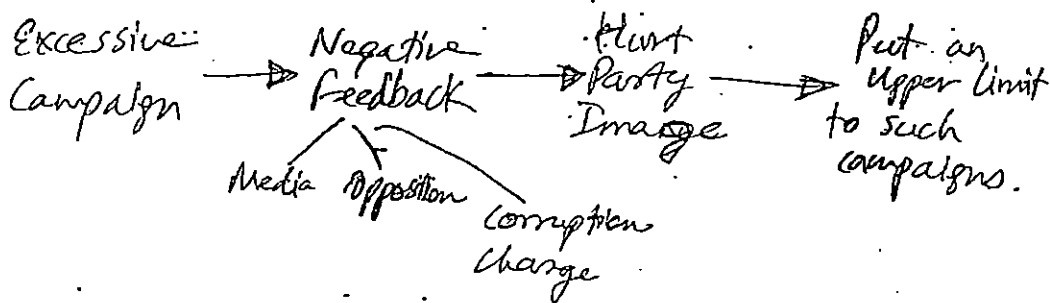 Excessive
Campaign
Negative
Feedback
Hurt
Party
Image
Put an
Upper limit
to such
campaigns.
Media
Opposition
Corruption
Charge